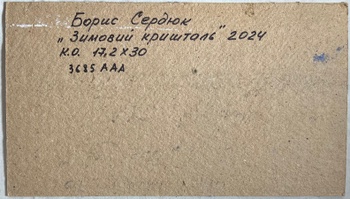 Борис Сердюк
„Зимовий кришталь" 2024
к.о. 17,2 х 30
3685 ААА